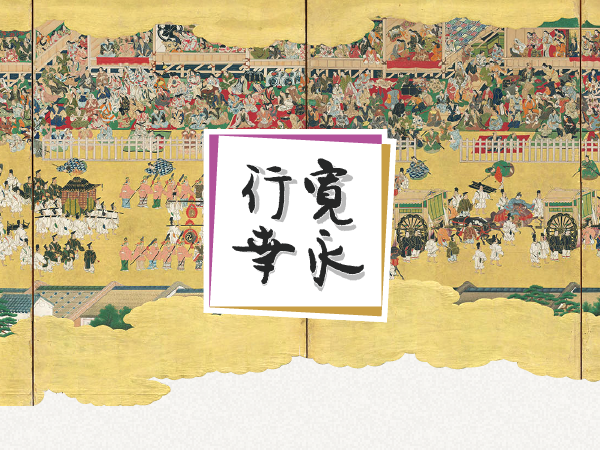 寛永
行幸